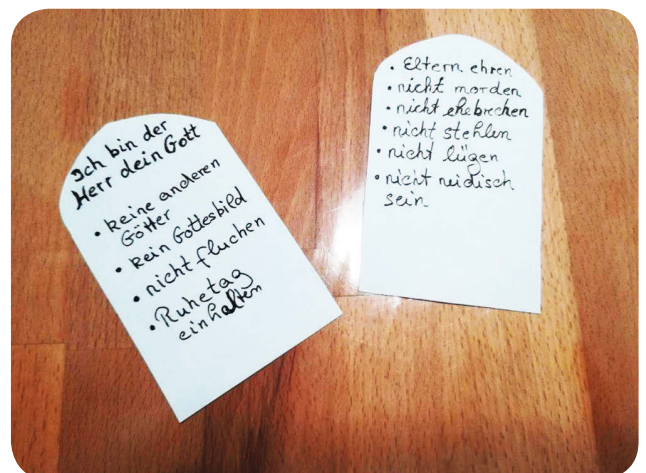 Ich bin der
Herr dein Gott
• keine anderen
Götter
• kein Gottesbild
• nicht fluchen
• Ruhetag
einhalten
• Eltern ehren
• nicht morden
• nicht ehebrechen
• nicht stehlen
• nicht lügen
• nicht neidisch
sein